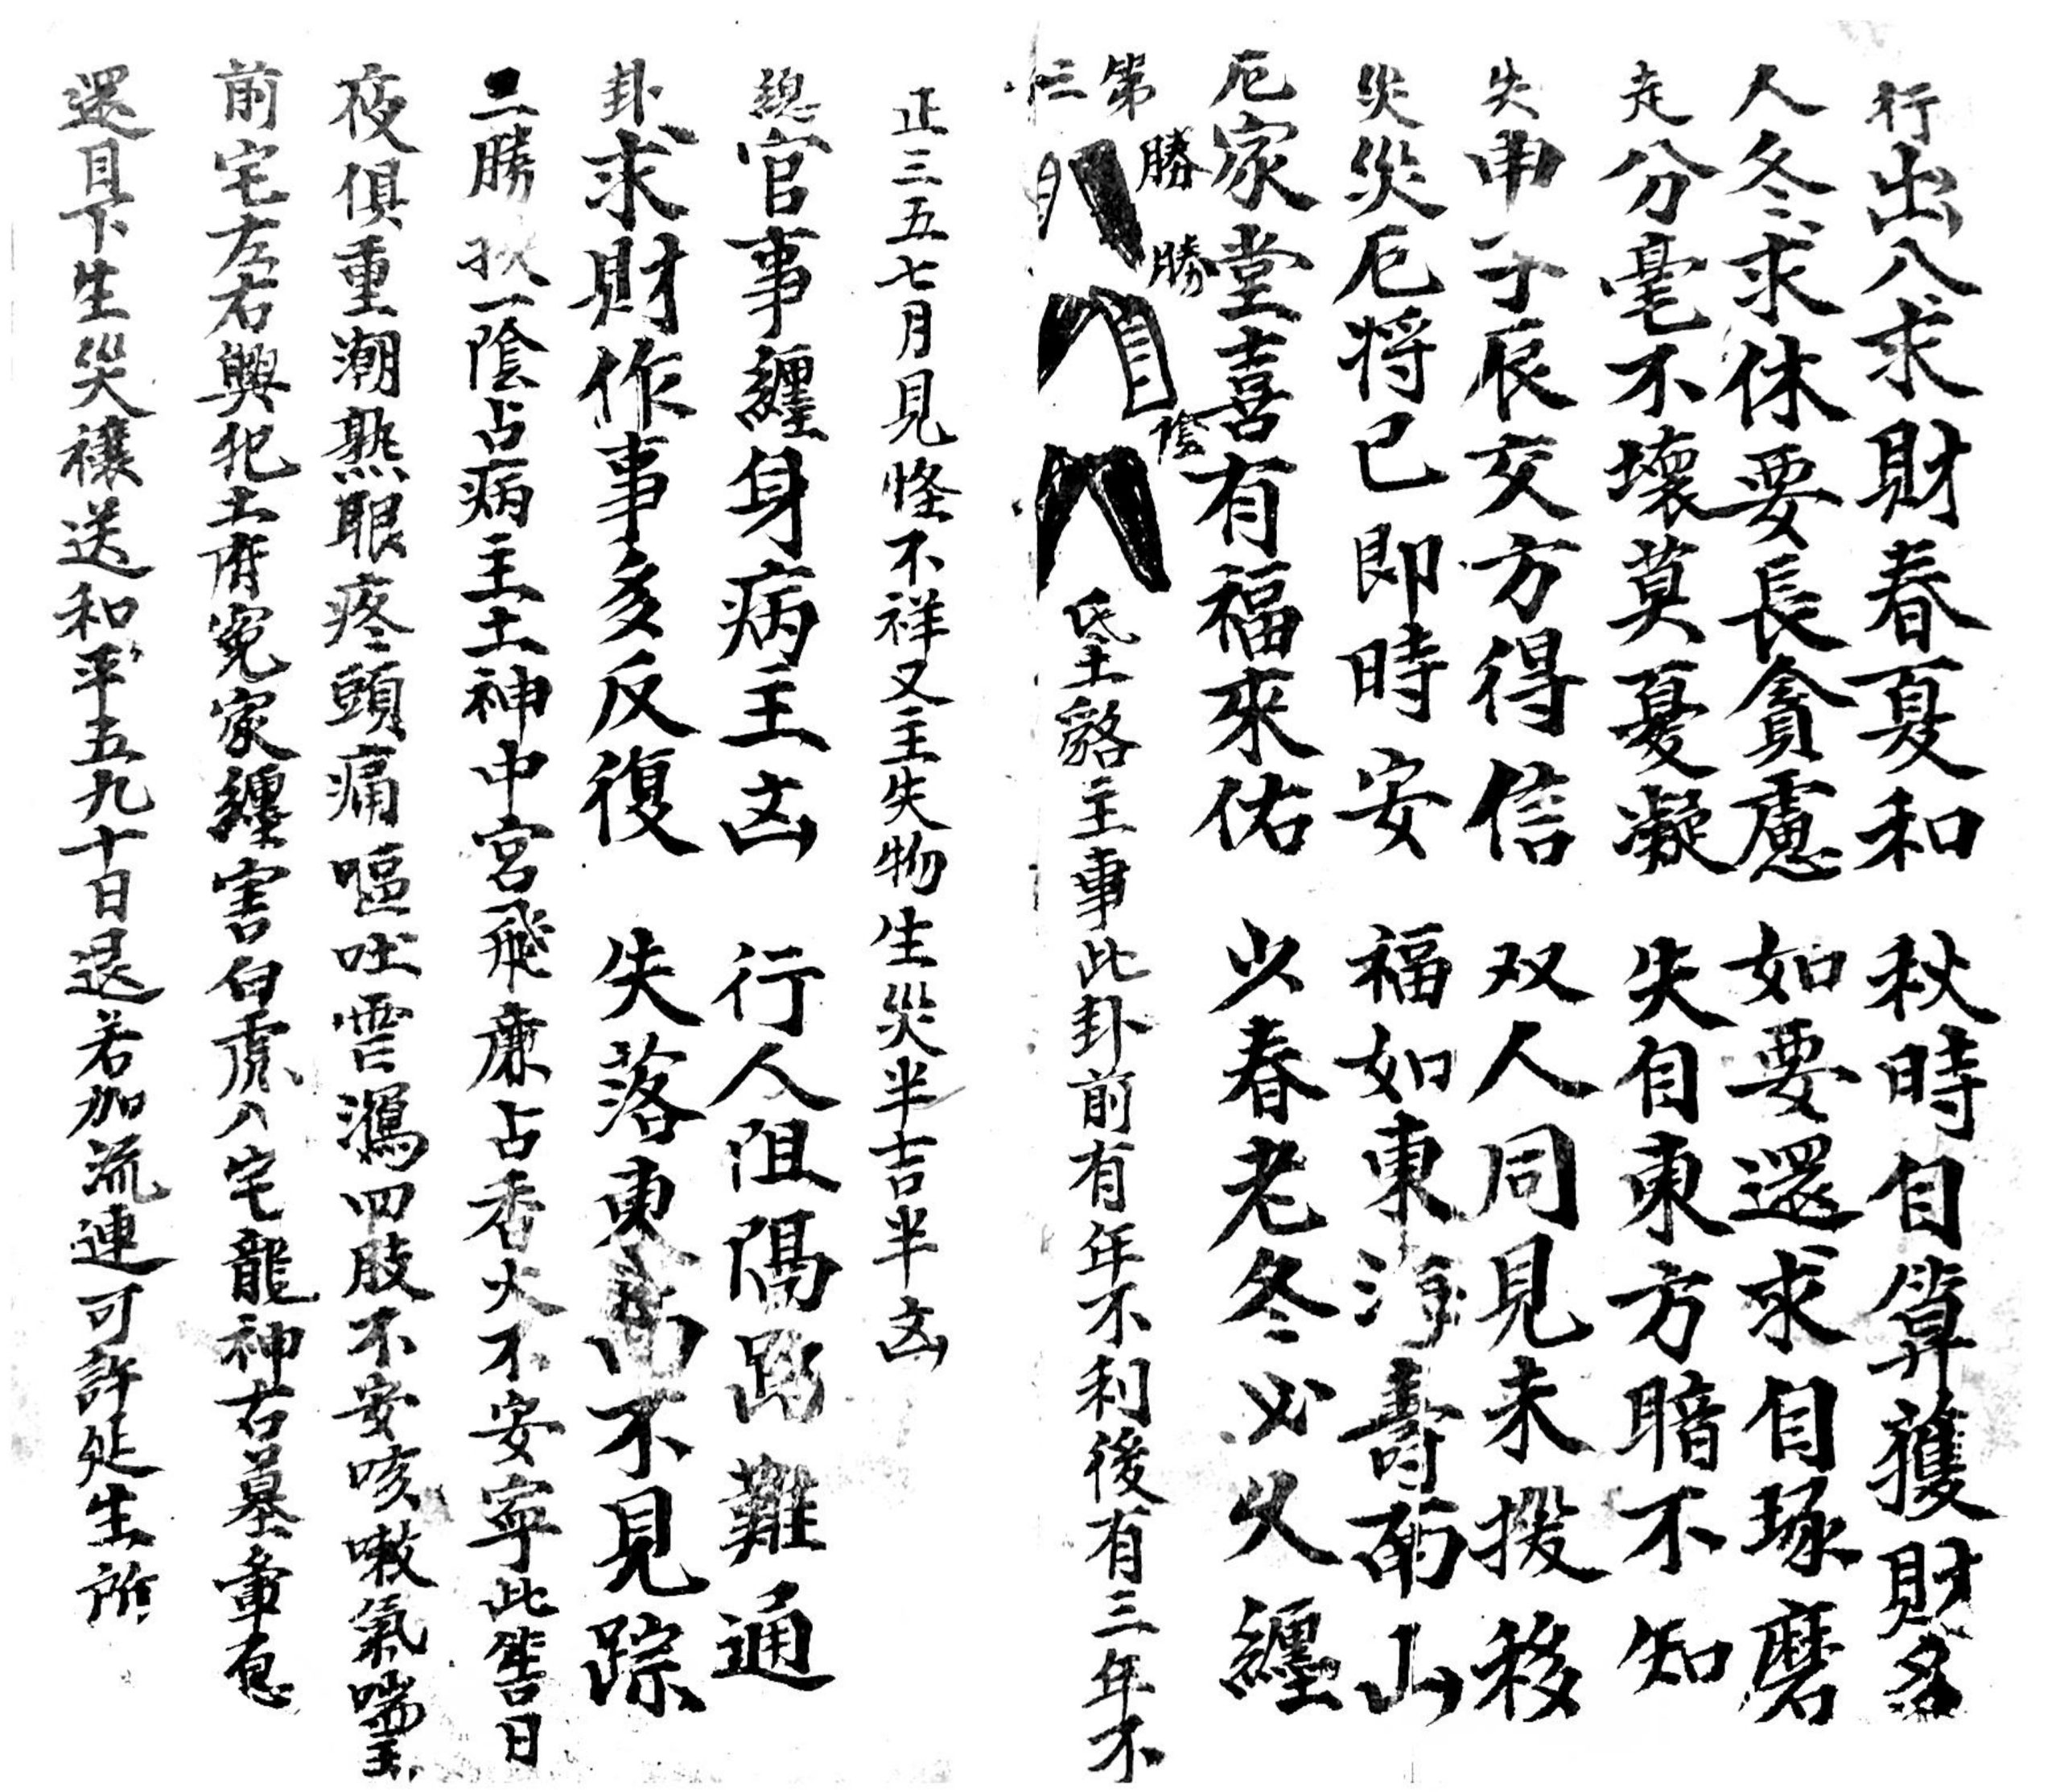 行出入求財春夏和　秋時自算獲財多
人冬求休要長貪慮　如要還求自琢磨
走分毫不壞莫憂凝　失自東方暗不知
失申子辰交方得信　双人同見未投移
災災厄将已即時安　福如東海壽南山
厄家堂喜有福來佑　少春老冬必久纏
第三　勝　勝　陰
氐土貉主事此卦前有年不利後有三年不
正三五七月見怪不祥又主失物生災半吉半凶
總官事纏身病主凶　行人阻隔路難通
卦求財作事多反復　失落東南不見踪
二勝扶一陰占病主土神中宮飛廉占香火不安寧此筶日
夜俱重潮熟眼疼頭痛嘔吐霍瀉四肢不安咳嗽氣喘主
前宅左右興犯土府冤家纏害白虎入宅龍神右墓章息
還目下生災禳送和平五九十日退若加流連可許延生所